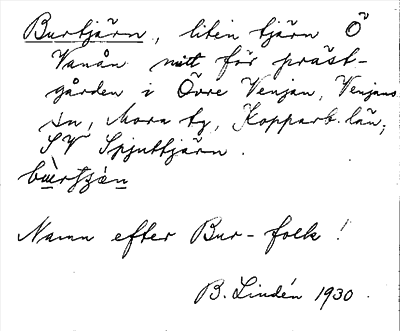 Burtjärn, liten tjärn Ö
Vanån mitt för präst-
gården i Övre Venjan, Venjans
sn, Mora tg, Kopparb. län,
SV Spjuttjärn.
Namn efter Bur-folk!
B. Lindén 1930.